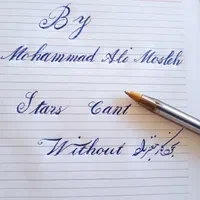 By
Mohammad Ali Mosleh
Stars Cant
Without